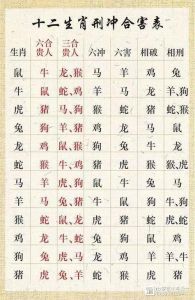 十二生肖刑冲合害表
生肖 六合贵人 三合贵人 六冲 六害 相破 相刑
鼠 牛 龙、猴 马 羊 鸡 兔
牛 鼠 蛇、鸡 羊 马 龙 狗、羊
虎 猪 马、狗 猴 蛇 猪 蛇、猴
兔 狗 羊、猪 鸡 龙 马 鼠
龙 鸡 鼠、猴 狗 兔 牛 龙
蛇 猴 牛、鸡 猪 虎 猴 虎、猴
马 羊 虎、狗 鼠 牛 兔 马
羊 马 兔、猪 牛 鼠 狗 狗、牛
猴 蛇 鼠、龙 虎 猪 蛇 虎、蛇
鸡 龙 牛、蛇 兔 狗 鼠 鸡
狗 兔 虎、马 龙 鸡 羊 牛、羊
猪 虎 兔、羊 蛇 猴 虎 猪